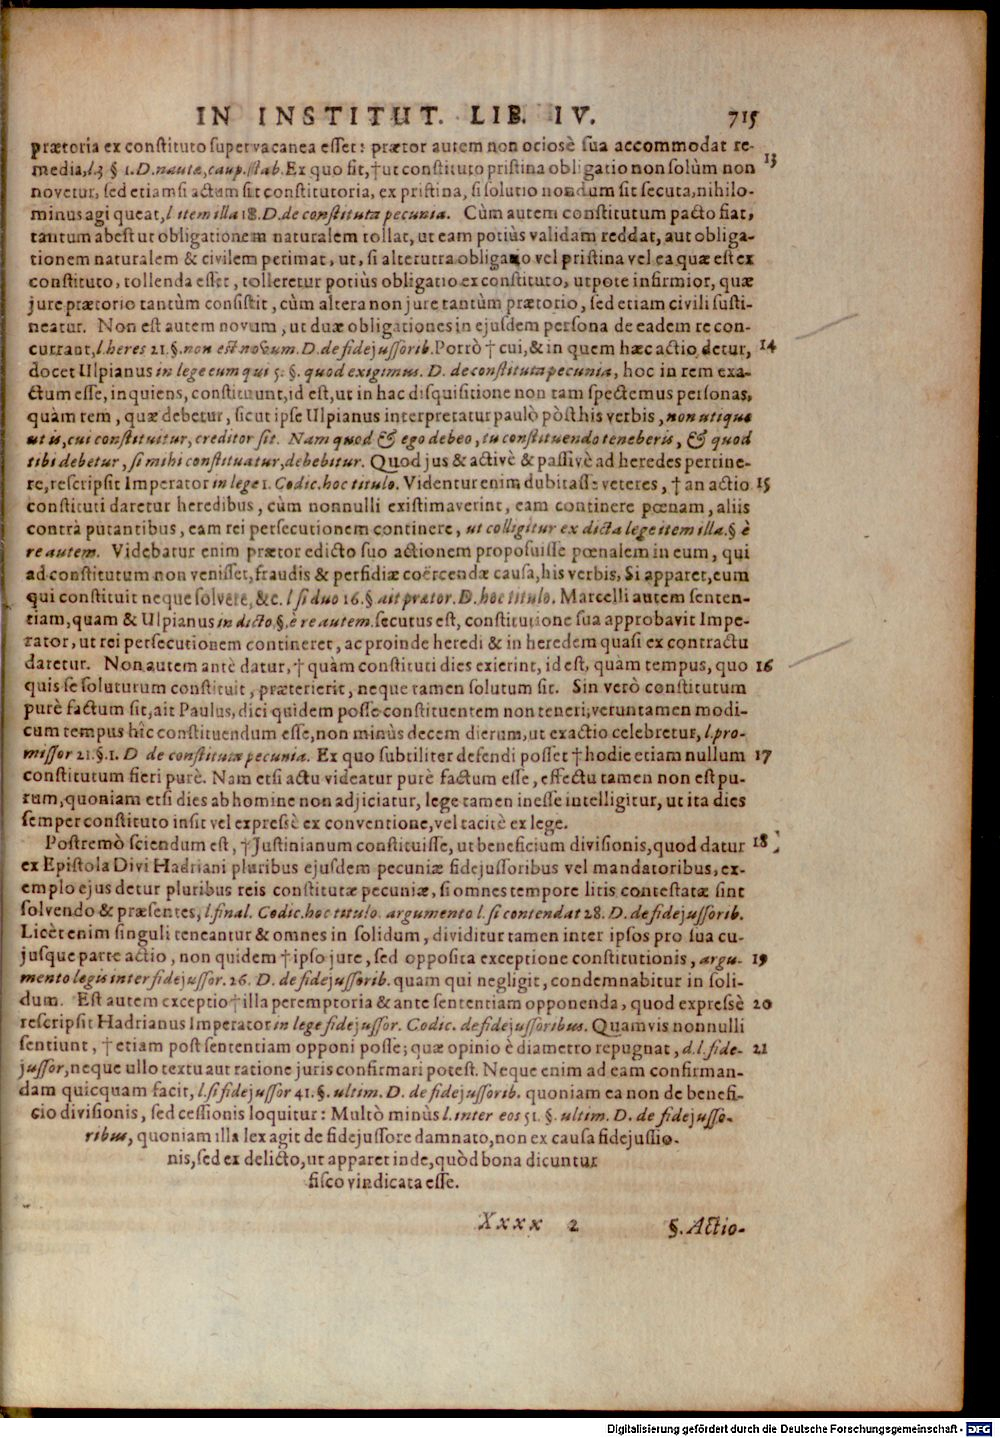 IN INSTITUT. LIB. IV. 715
prætoria ex constituto supervacanea esset: prætor autem non ociosè sua accommodat re-
media, l.3 § 1. D. nautæ, caup. stab. Ex quo fit, † ut constituto pristina obligatio non solùm non 13
novetur, sed etiamsi actum sit constitutoria, ex pristina, si solutio nondum sit secuta, nihilo-
minus agi queat, l item illa 18. D. de constituta pecunia. Cùm autem constitutum pacto fiat,
tantum abest ut obligationem naturalem tollat, ut eam potiùs validam reddat, aut obliga-
tionem naturalem & civilem perimat, ut, si alterutra obligatio vel pristina vel ea quæ est ex
constituto, tollenda esset, tolleretur potiùs obligatio ex constituto, utpote infirmior, quæ
jure prætorio tantùm consistit, cùm altera non jure tantùm prætorio, sed etiam civili susti-
neatur. Non est autem novum, ut duæ obligationes in ejusdem persona de eadem re con-
currant, l. heres 21. §. non est novum. D. de fidejussorib. Porrò † cui, & in quem hæc actio detur, 14
docet Ulpianus in lege eum qui 5. §. quod exigimus. D. de constituta pecunia, hoc in rem exa-
ctum esse, inquiens, constituunt, id est, ut in hac disquisitione non tam spectemus personas,
quàm rem, quæ debetur, sicut ipse Ulpianus interpretatur paulò pòst his verbis, non utique
ut is, cui constituitur, creditor sit. Nam quod & ego debeo, tu constituendo teneberis, & quod
tibi debetur, si mihi constituatur, debebitur. Quod jus & activè & passivè ad heredes pertine-
re, rescripsit Imperator in lege 1. Codic. hoc titulo. Videntur enim dubitasse veteres, † an actio 15
constituti daretur heredibus, cùm nonnulli existimaverint, eam continere pœnam, aliis
contrà putantibus, eam rei persecutionem continere, ut colligitur ex dicta lege item illa. § è
re autem. Videbatur enim prætor edicto suo actionem proposuisse pœnalem in eum, qui
ad constitutum non venisset, fraudis & perfidiæ coërcendæ causa, his verbis, Si apparet, eum
qui constituit neque solvere, &c. l si duo 16. § ait prætor. D. hoc titulo. Marcelli autem senten-
tiam, quam & Ulpianus in dicto §. è re autem. secutus est, constitutione sua approbavit Impe-
rator, ut rei persecutionem contineret, ac proinde heredi & in heredem quasi ex contractu
daretur. Non autem antè datur, † quàm constituti dies exierint, id est, quàm tempus, quo 16
quis se soluturum constituit, præterierit, neque tamen solutum sit. Sin verò constitutum
purè factum sit, ait Paulus, dici quidem posse constituentem non teneri, veruntamen modi-
cum tempus hîc constituendum esse, non minùs decem dierum, ut exactio celebretur, l. pro-
missor 21. §. 1. D de constitutæ pecunia. Ex quo subtiliter defendi posset † hodie etiam nullum 17
constitutum fieri purè. Nam etsi actu videatur purè factum esse, effectu tamen non est pu-
rum, quoniam etsi dies ab homine non adjiciatur, lege tamen inesse intelligitur, ut ita dies
semper constituto insit vel expressè ex conventione, vel tacitè ex lege.
Postremò sciendum est, † Justinianum constituisse, ut beneficium divisionis, quod datur 18
ex Epistola Divi Hadriani pluribus ejusdem pecuniæ fidejussoribus vel mandatoribus, ex-
emplo ejus detur pluribus reis constitutæ pecuniæ, si omnes tempore litis contestatæ sint
solvendo & præsentes, l. final. Codic. hoc titulo. argumento l. si contendat 28. D. de fidejussorib.
Licèt enim singuli teneantur & omnes in solidum, dividitur tamen inter ipsos pro sua cu-
jusque parte actio, non quidem † ipso jure, sed opposita exceptione constitutionis, argu- 19
mento legis inter fidejussor. 26. D. de fidejussorib. quam qui negligit, condemnabitur in soli-
dum. Est autem exceptio † illa peremptoria & ante sententiam opponenda, quod expressè 20
rescripsit Hadrianus Imperator in lege fidejussor. Codic. de fidejussoribus. Quamvis nonnulli
sentiunt, † etiam post sententiam opponi posse; quæ opinio è diametro repugnat, d. l. fide- 21
jussor, neque ullo textu aut ratione juris confirmari potest. Neque enim ad eam confirman-
dam quicquam facit, l. si fidejussor 41. §. ultim. D. de fidejussorib. quoniam ea non de benefi-
cio divisionis, sed cessionis loquitur: Multò minùs l. inter eos 51. §. ultim. D. de fidejusso-
ribus, quoniam illa lex agit de fidejussore damnato, non ex causa fidejussio-
nis, sed ex delicto, ut apparet inde, quòd bona dicuntur
fisco vindicata esse.
Xxxx 2 §. Actio-
Digitalisierung gefördert durch die Deutsche Forschungsgemeinschaft - DFG